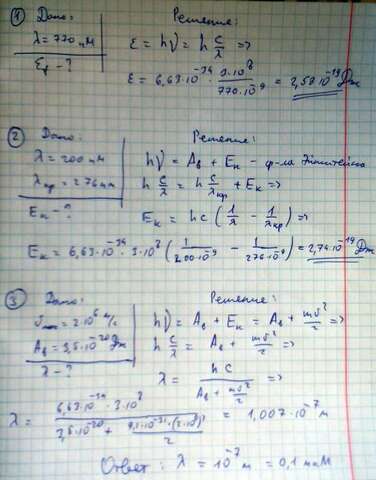 ① Дано: Решение:
λ = 770 нм
Eф - ?
ε = hν = h c/λ =>
ε = 6,63·10⁻³⁴ · 3·10⁸/770·10⁻⁹ = 2,58·10⁻¹⁹ Дж
② Дано: Решение:
λ = 200 нм
λкр = 276 нм
Eк - ?
hν = Aв + Eк - ф-ла Эйнштейна
h c/λ = h c/λкр + Eк =>
Eк = hc (1/λ - 1/λкр) =>
Eк = 6,63·10⁻³⁴ · 3·10⁸ (1/200·10⁻⁹ - 1/276·10⁻⁹) = 2,74·10⁻¹⁹ Дж
③ Дано: Решение:
= 2·10⁶ м/с
Aв = 3,5·10⁻²⁰ Дж
λ - ?
hν = Aв + Eк = Aв + mv²/2 =>
h c/λ = Aв + mv²/2 =>
λ = hc/(Aв + mv²/2) =>
λ = 6,63·10⁻³⁴ · 3·10⁸/(3,5·10⁻²⁰ + 9,1·10⁻³¹·(2·10⁶)²/2) = 1,007·10⁻⁷ м
Ответ: λ = 10⁻⁷ м = 0,1 мкм